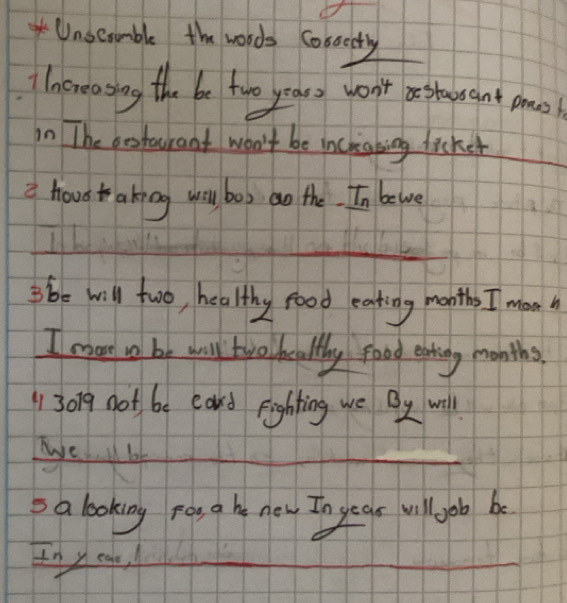 * Unscramble the words Correctly
1 Increasing the be two years won't restaurant prices
in The restaurant won't be increasing ticket
2 hour taking will, bus an the - In be we
3 be will two, healthy food eating months I more in
I more in be will two healthy food eating months.
4 3019 not, be covid Fighting we By will
We will be
5 a looking For, a he new In year will job be.
In year,